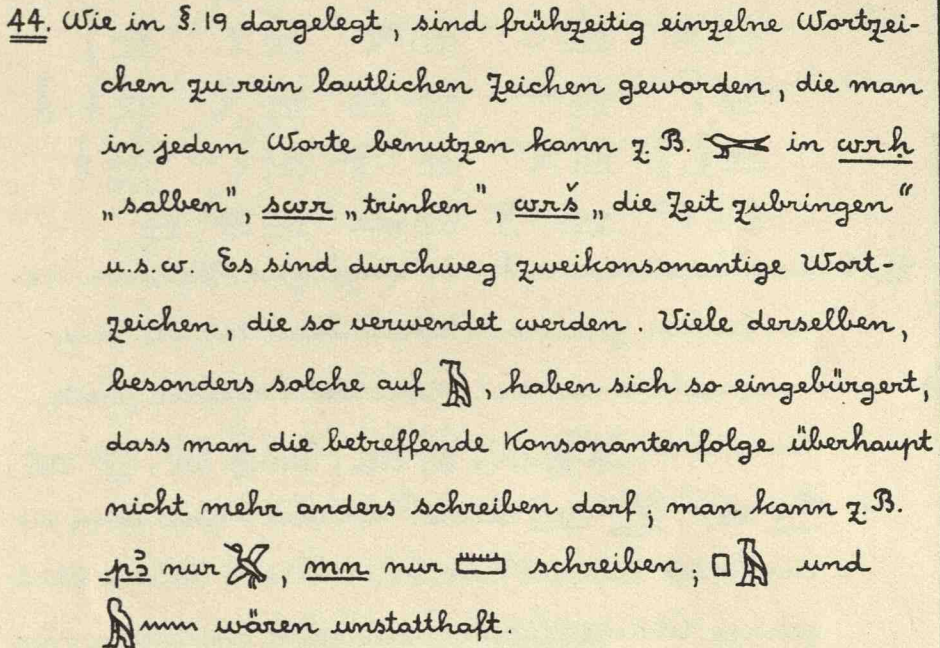 44. Wie in §. 19 dargelegt, sind frühzeitig einzelne Wortzei-
chen zu rein lautlichen Zeichen geworden, die man
in jedem Worte benutzen kann z. B. 𓅨 in wrḥ
„salben", swr „trinken", wrš „die Zeit zubringen"
u.s.w. Es sind durchweg zweikonsonantige Wort-
zeichen, die so verwendet werden. Viele derselben,
besonders solche auf 𓄿, haben sich so eingebürgert,
dass man die betreffende Konsonantenfolge überhaupt
nicht mehr anders schreiben darf; man kann z. B.
pꜣ nur 𓅮, mn nur 𓏠 schreiben; 𓊪𓄿 und
𓅓𓈖 wären unstatthaft.